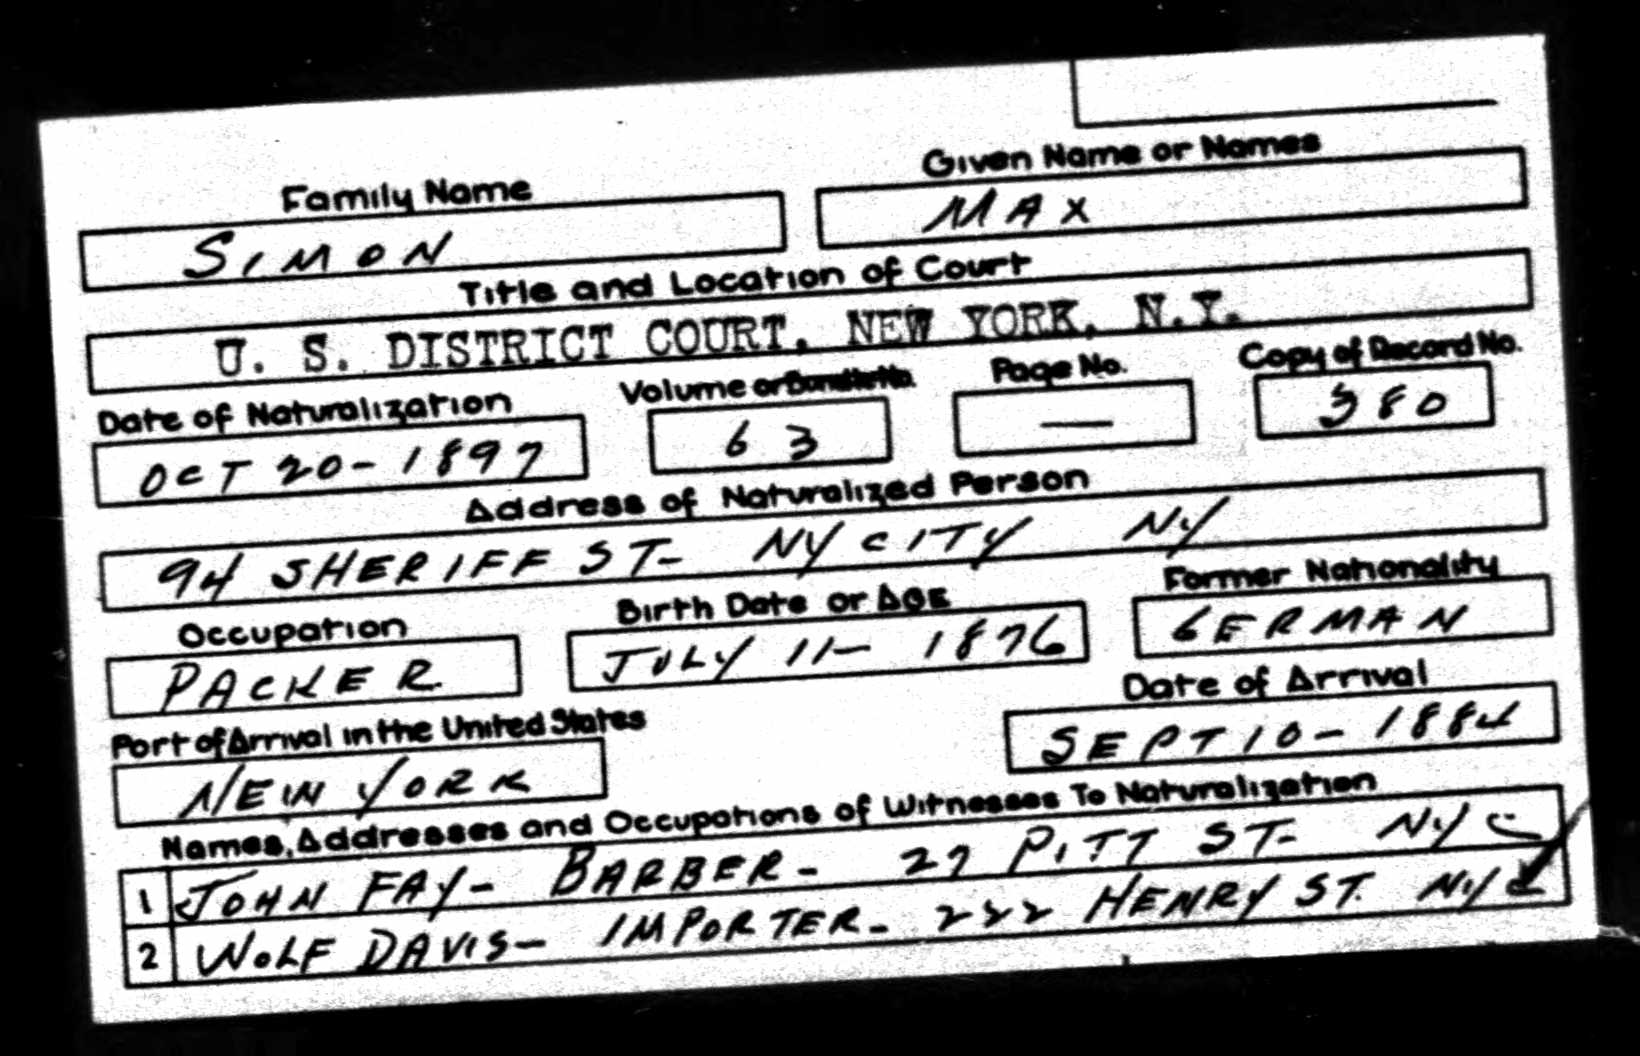 Family Name Given Name or Names
SIMON MAX
Title and Location of Court
U. S. DISTRICT COURT, NEW YORK, N.Y.
Date of Naturalization Volume or Bundle No. Page No. Copy of Record No.
OCT 20 - 1897 63 — 380
Address of Naturalized Person
94 SHERIFF ST - NY CITY NY
Occupation Birth Date or AGE Former Nationality
PACKER JULY 11 - 1876 GERMAN
Port of Arrival in the United States Date of Arrival
NEW YORK SEPT 10 - 1884
Names, Addresses and Occupations of Witnesses To Naturalization
1 JOHN FAY - BARBER - 27 PITT ST - NYC
2 WOLF DAVIS - IMPORTER - 222 HENRY ST. NYC